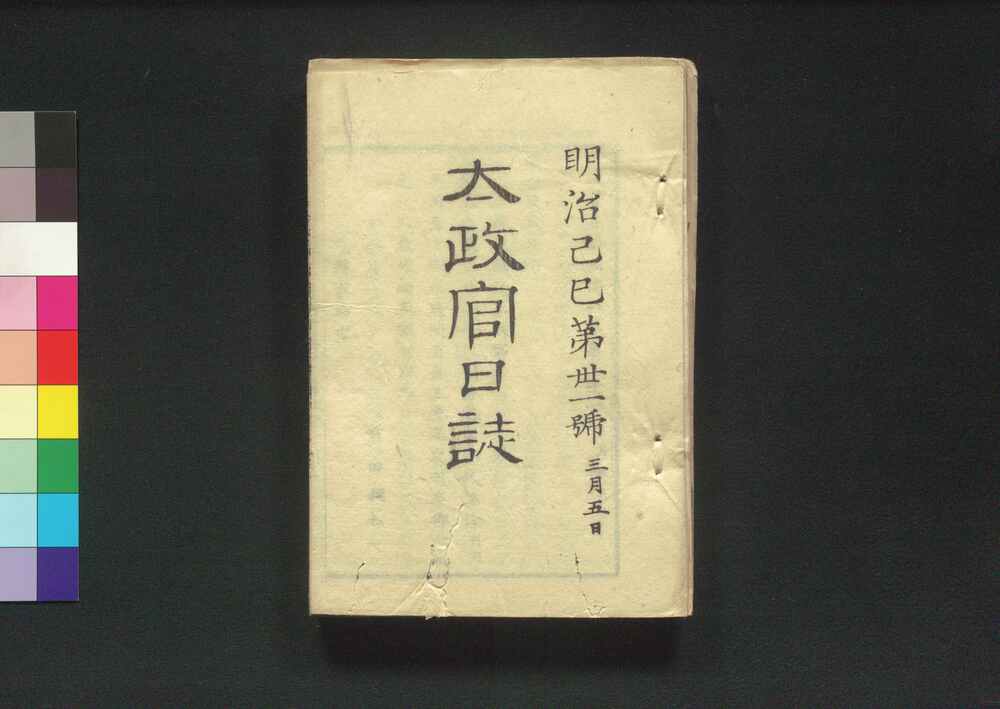 明治己巳第卅一號 三月五日
太政官日誌